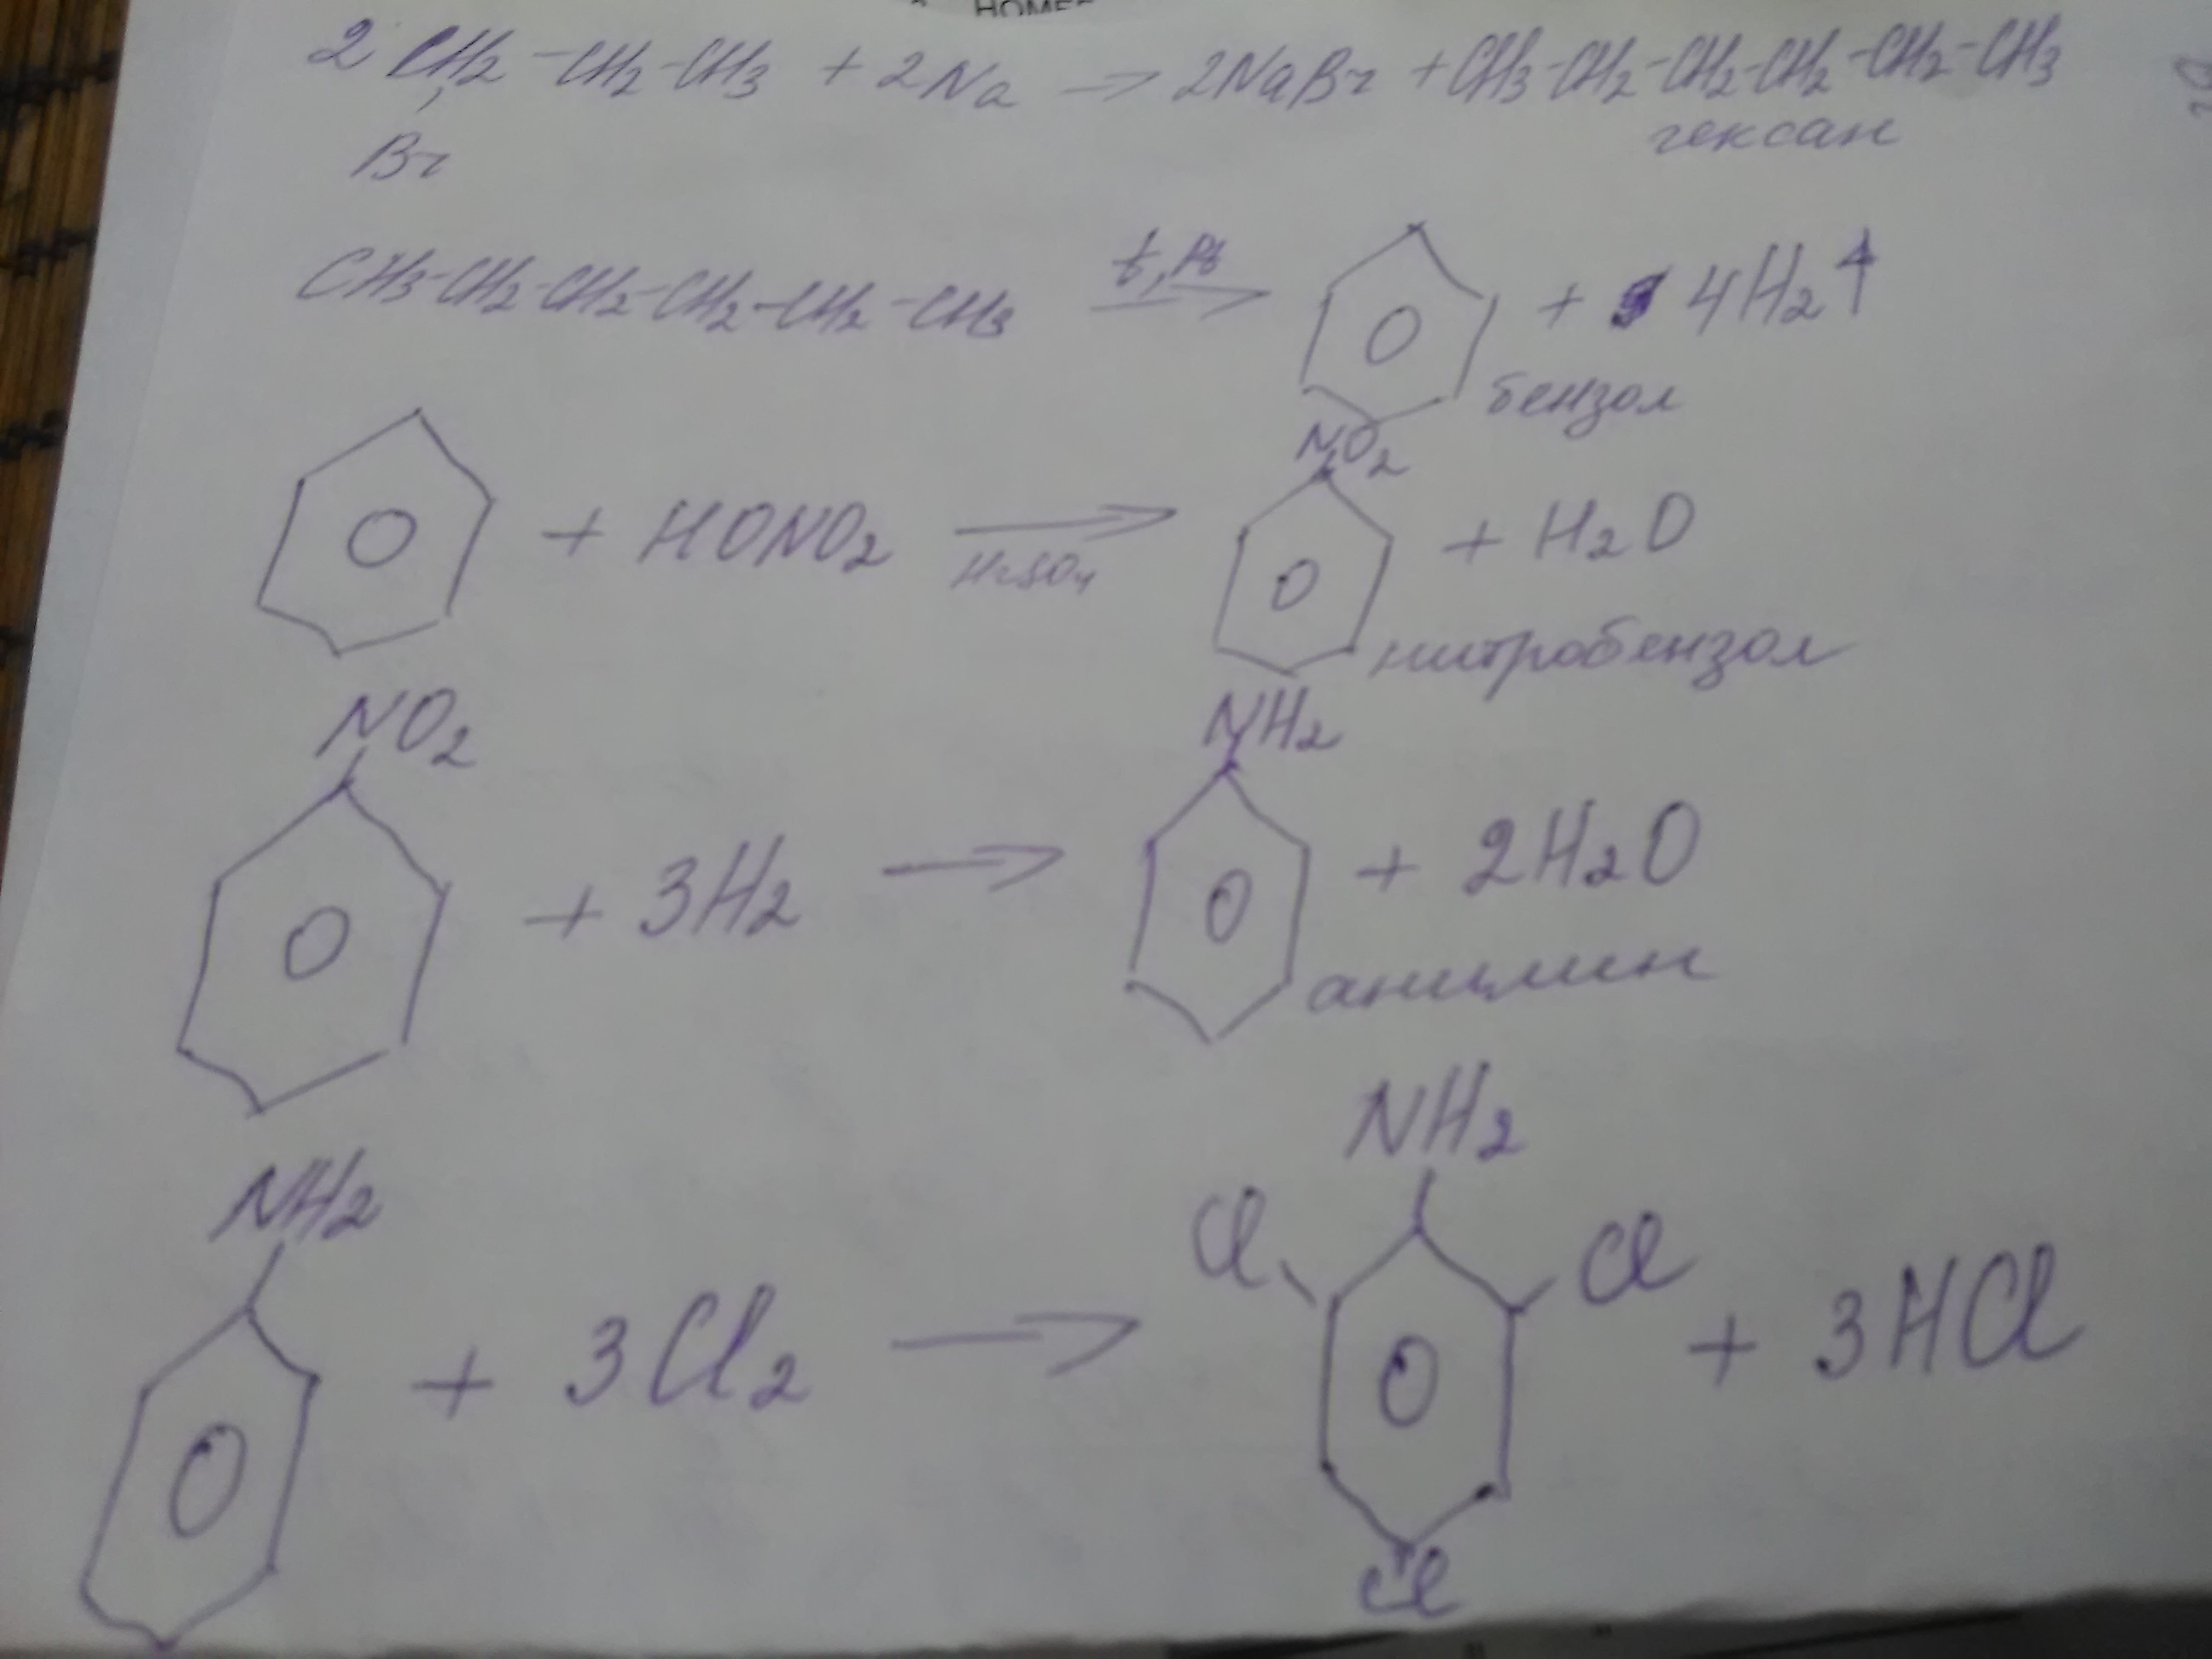 НОМЕ
2 CH2 - CH2 - CH3 + 2Na → 2NaBr + CH3-CH2-CH2-CH2-CH2-CH3
Br
гексан
CH3-CH2-CH2-CH2-CH2-CH3 t, Pt → + 4H2↑
бензол
NO2
+ HONO2 → + H2O
H2SO4
нитробензол
NO2 NH2
+ 3H2 → + 2H2O
анилин
NH2 NH2
Cl Cl
+ 3Cl2 → + 3HCl
Cl